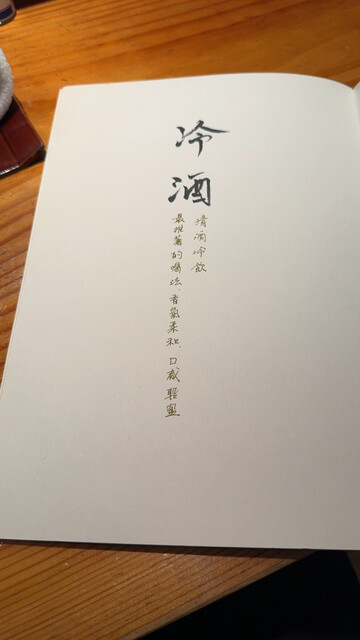 冷酒
清酒冷飲
最推薦的喝法，香氣柔和，口感輕盈